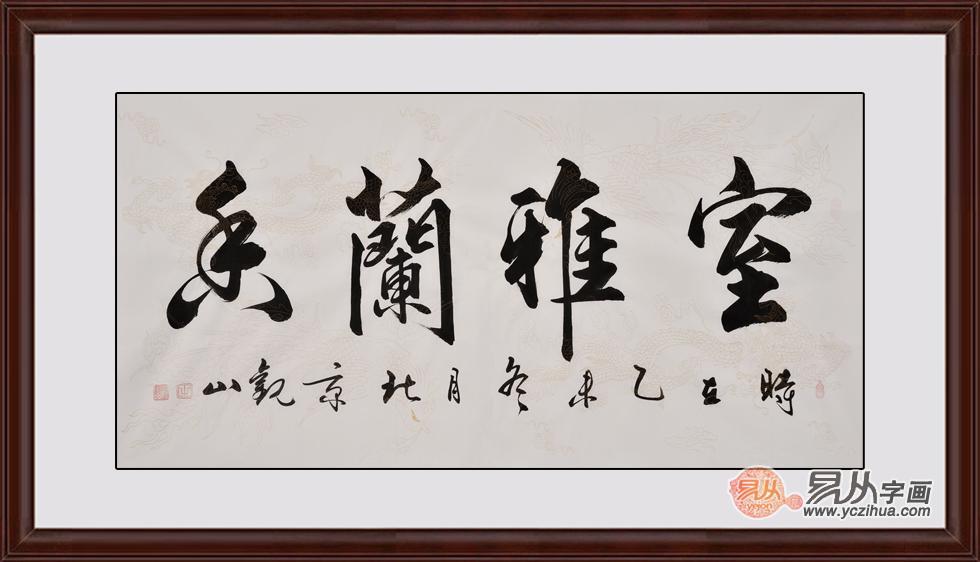 室雅蘭香
時在乙未冬月北京觀山
易从
易从字画
www.yczihua.com